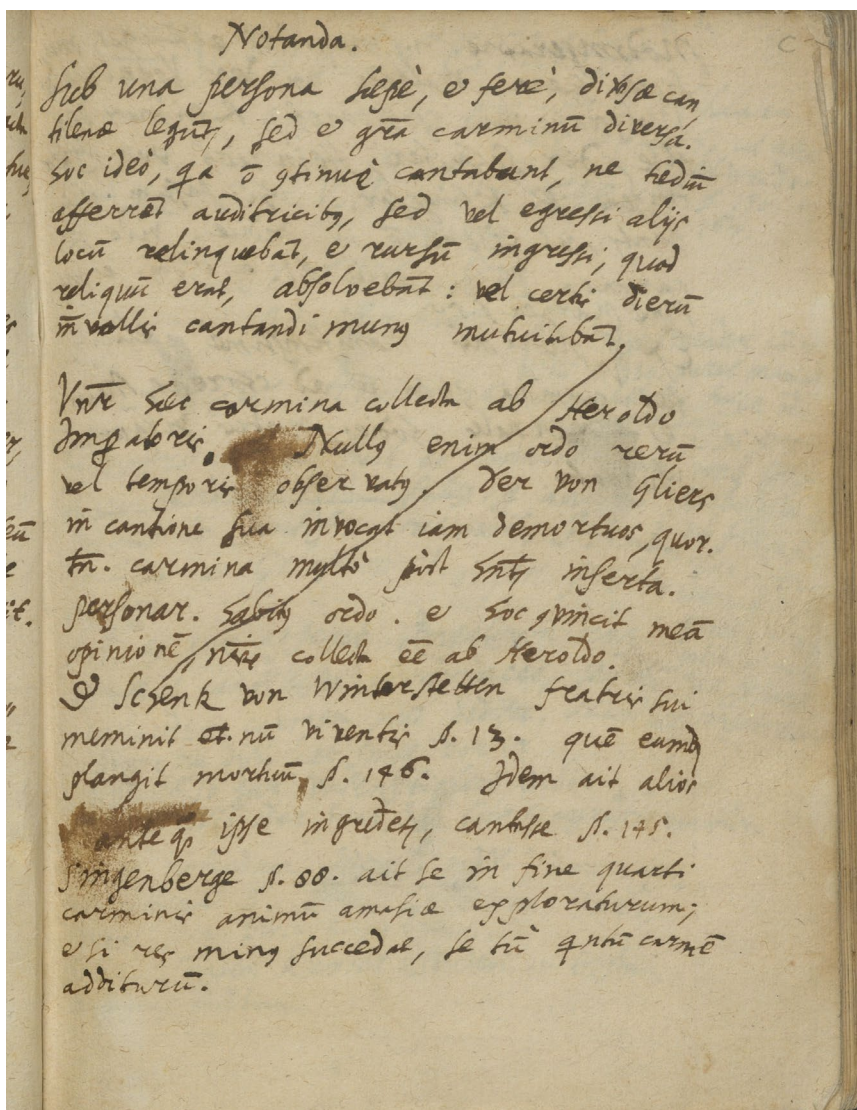 Notanda.
Sub una persona sępè, et ferè, diversæ can
tilenæ legunt, sed et gra carminū diversa.
hoc ideò, qa ō continuè cantabant, ne tediū
afferret auditricib9, sed vel egressi alijs
locū relinquebāt, et rursū ingressi, quod
reliquū erat, absolvebāt : vel certis dierū
cantandi mun9 mutuitabāt.
hæc carmina collecta ab Heroldo
Imperatoris. Null9 enim ordo rerū
vel temporis observat9. Der von Gliers
in cantione sua invocat iam demortuos, quor.
tn. carmina multò pòst inserta.
personar. habit9 ordo. et hoc convincit meā
opinionē, collecta eē ab Heroldo.
Schenk von Winterstetten fratris sui
meminit et. nū viventis p. 13. quē eumd
plangit mortuū p. 146. Idem ait alios
ante q̄ ipse cantasse p. 145.
Singenberge p. 00. ait se in fine quarti
carminis animū amasiæ exploraturum;
et si res min9 succedat, se tū qntū carmē
additurū.